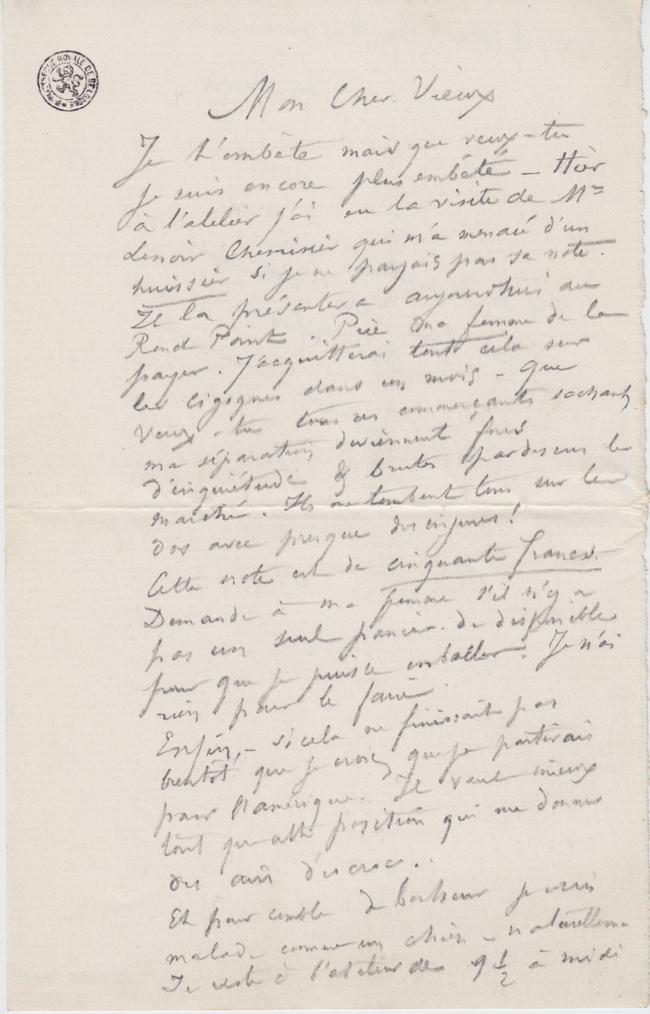 BIBLIOTHEQUE ROYALE DE BELGIQUE
Mon Cher Vieux
Je t'embête mais que veux-tu
je suis encore plus embêté – Hier
à l'atelier j'ai eu la visite de Mr
Lenoir Chemisier qui m'a menacé d'un
huissier si je ne payais pas sa note.
Il la présentera aujourd'hui au
Rond Point. Prie ma femme de la
payer. J'acquitterai tout cela sur
les cigognes dans un mois – que
veux-tu tous ces commerçants sachant
ma séparation deviennent fous
d'inquiétude & brutes pardessus le
marché. Ils me tombent tous sur le
dos avec presque des injures!
Cette note est de cinquante francs.
Demande à ma femme s'il n'y a
pas un seul panier de disponible
pour que je puisse emballer. Je n'ai
rien pour le faire
Enfin, – si cela ne finissait pas
bientôt, que je crois que je partirais
pour l'Amérique. Il vaut mieux
tout que cette position qui me donne
des airs d'escroc..
Et pour comble de bonheur je suis
malade comme un chien – naturellement
Je reste à l'atelier de 9 1/2 à midi